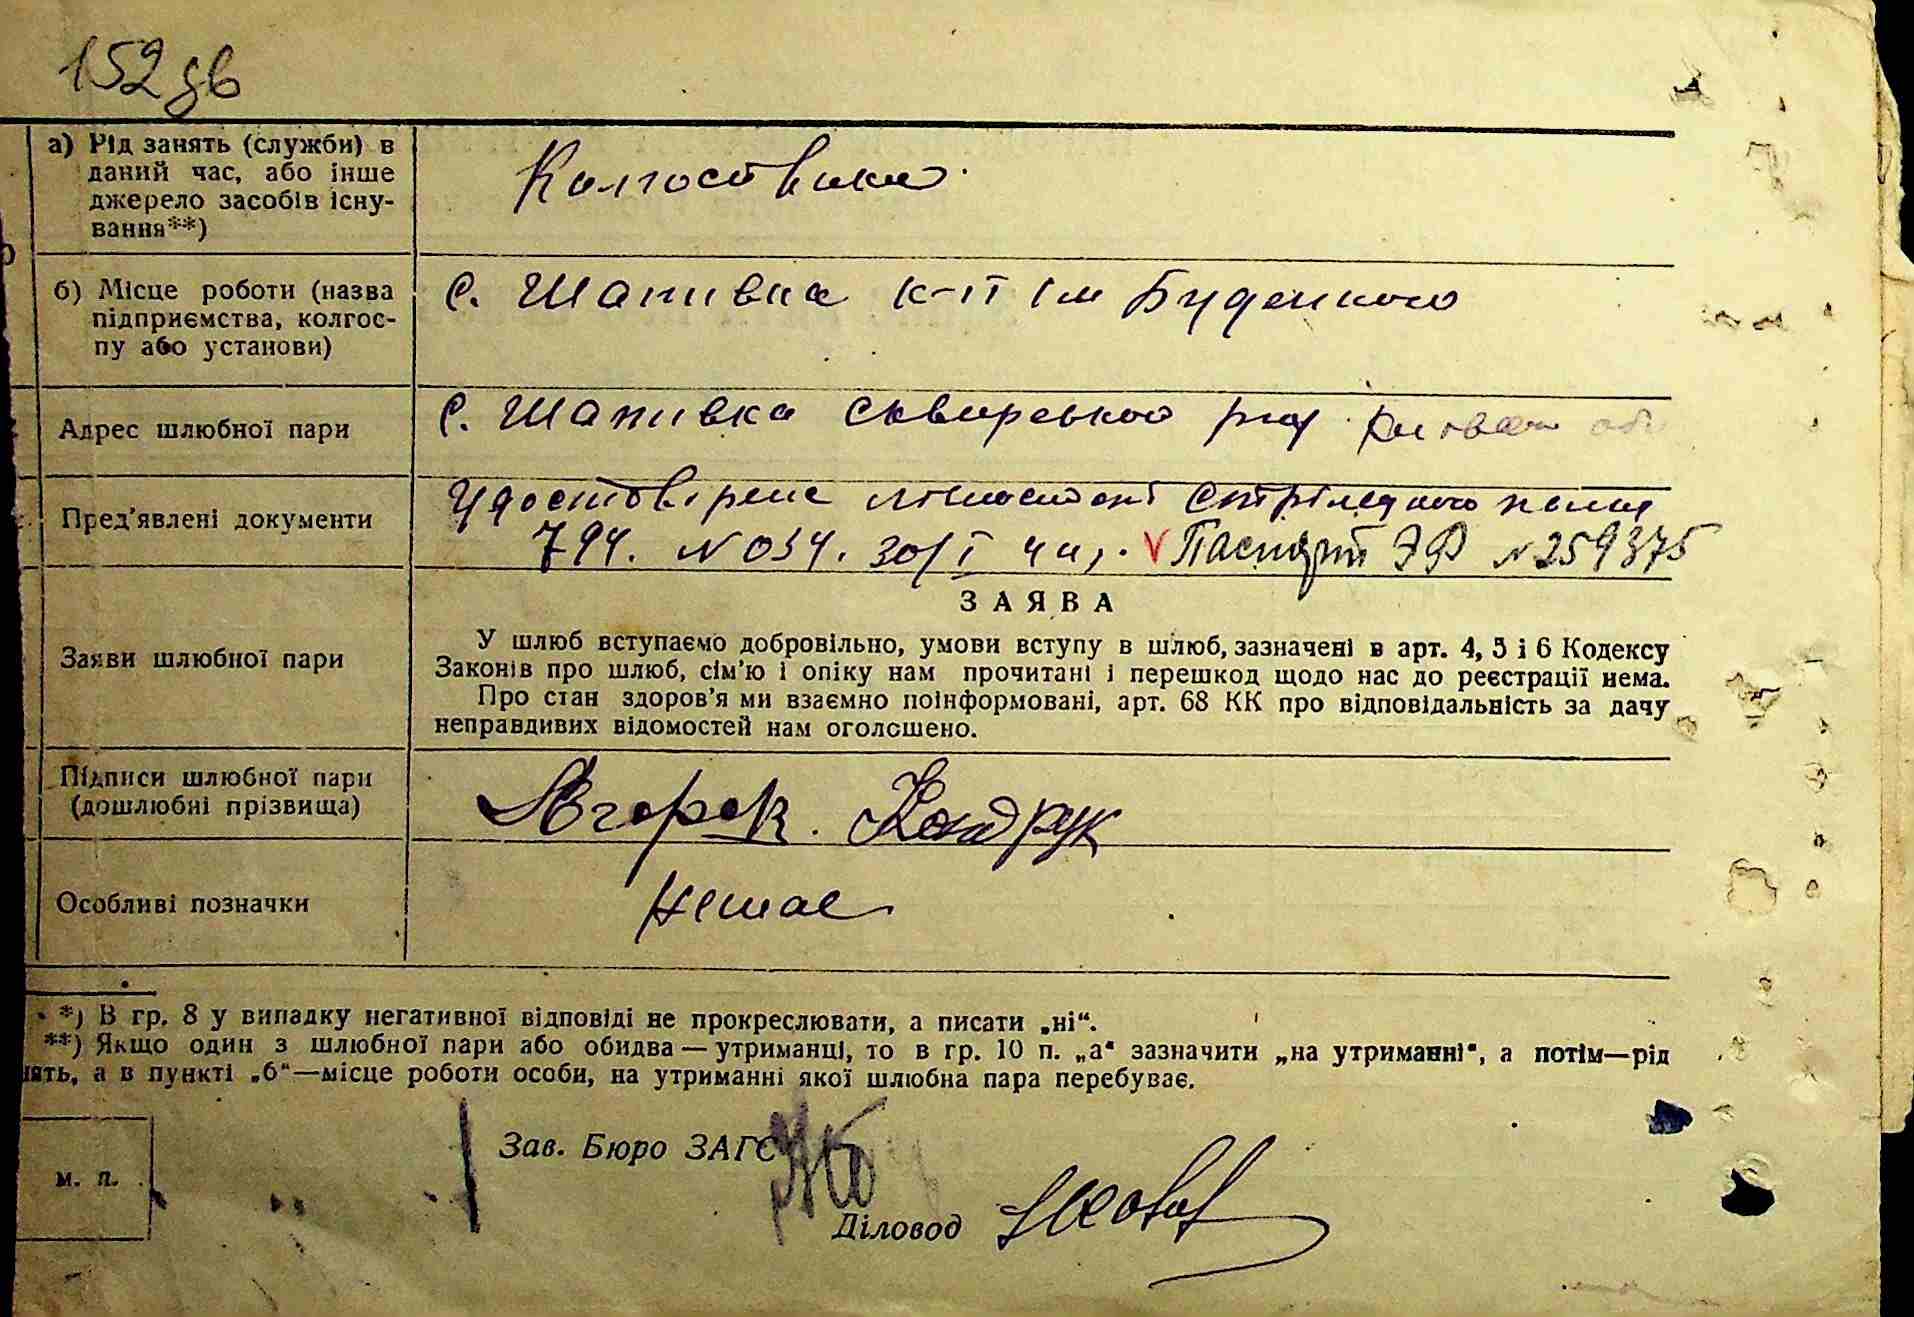 152 зв
а) Рід занять (служби) в
даний час, або інше
джерело засобів існу-
вання**)
Колгоспники
б) Місце роботи (назва
підприємства, колгос-
пу або установи)
с. Шапивка к-п ім Буденного
Адрес шлюбної пари
с. Шапивка Сквирського р-ну
Пред'явлені документи
Удостовірене стрілецького полку
794. N 034. 30/I 44 р. V Паспорт ЭФ N 259375
Заяви шлюбної пари
ЗАЯВА
У шлюб вступаємо добровільно, умови вступу в шлюб, зазначені в арт. 4, 5 і 6 Кодексу
Законів про шлюб, сім'ю і опіку нам прочитані і перешкод щодо нас до реєстрації нема.
Про стан здоров'я ми взаємно поінформовані, арт. 68 КК про відповідальність за дачу
неправдивих відомостей нам оголошено.
Підписи шлюбної пари
(дошлюбні прізвища)
Кондрук
Особливі позначки
Немає
*) В гр. 8 у випадку негативної відповіді не прокреслювати, а писати „ні“.
**) Якщо один з шлюбної пари або обидва — утриманці, то в гр. 10 п. „а“ зазначити „на утриманні“, а потім—рід
нять, а в пункті „б“—місце роботи особи, на утриманні якої шлюбна пара перебуває.
Зав. Бюро ЗАГС
м. п.
Діловод